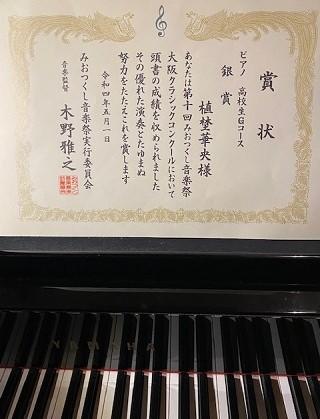 賞状
ピアノ 高校生Gコース
銀賞
植埜華央様
あなたは第十回みおつくし音楽祭
大阪クラシックコンクールにおいて
頭書の成績を収められました
その優れた演奏とたゆまぬ
努力をたたえこれを賞します
令和四年五月一日
みおつくし音楽祭実行委員会
音楽監督 木野雅之
YAMAHA